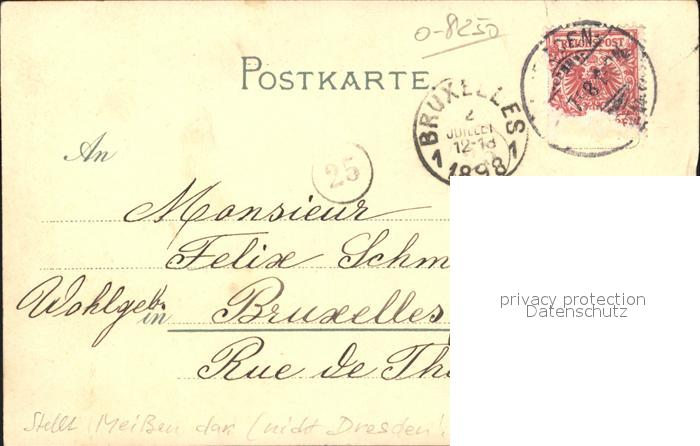 0-8250
REICHSPOST
POSTKARTE.
BRUXELLES
2
JUILLET
12-1
1 1898 1
25
An
Monsieur
Felix Schm
Wohlgeb. in Bruxelles
Rue de Th
privacy protection
Datenschutz
Stellt Meißen dar (nicht Dresden